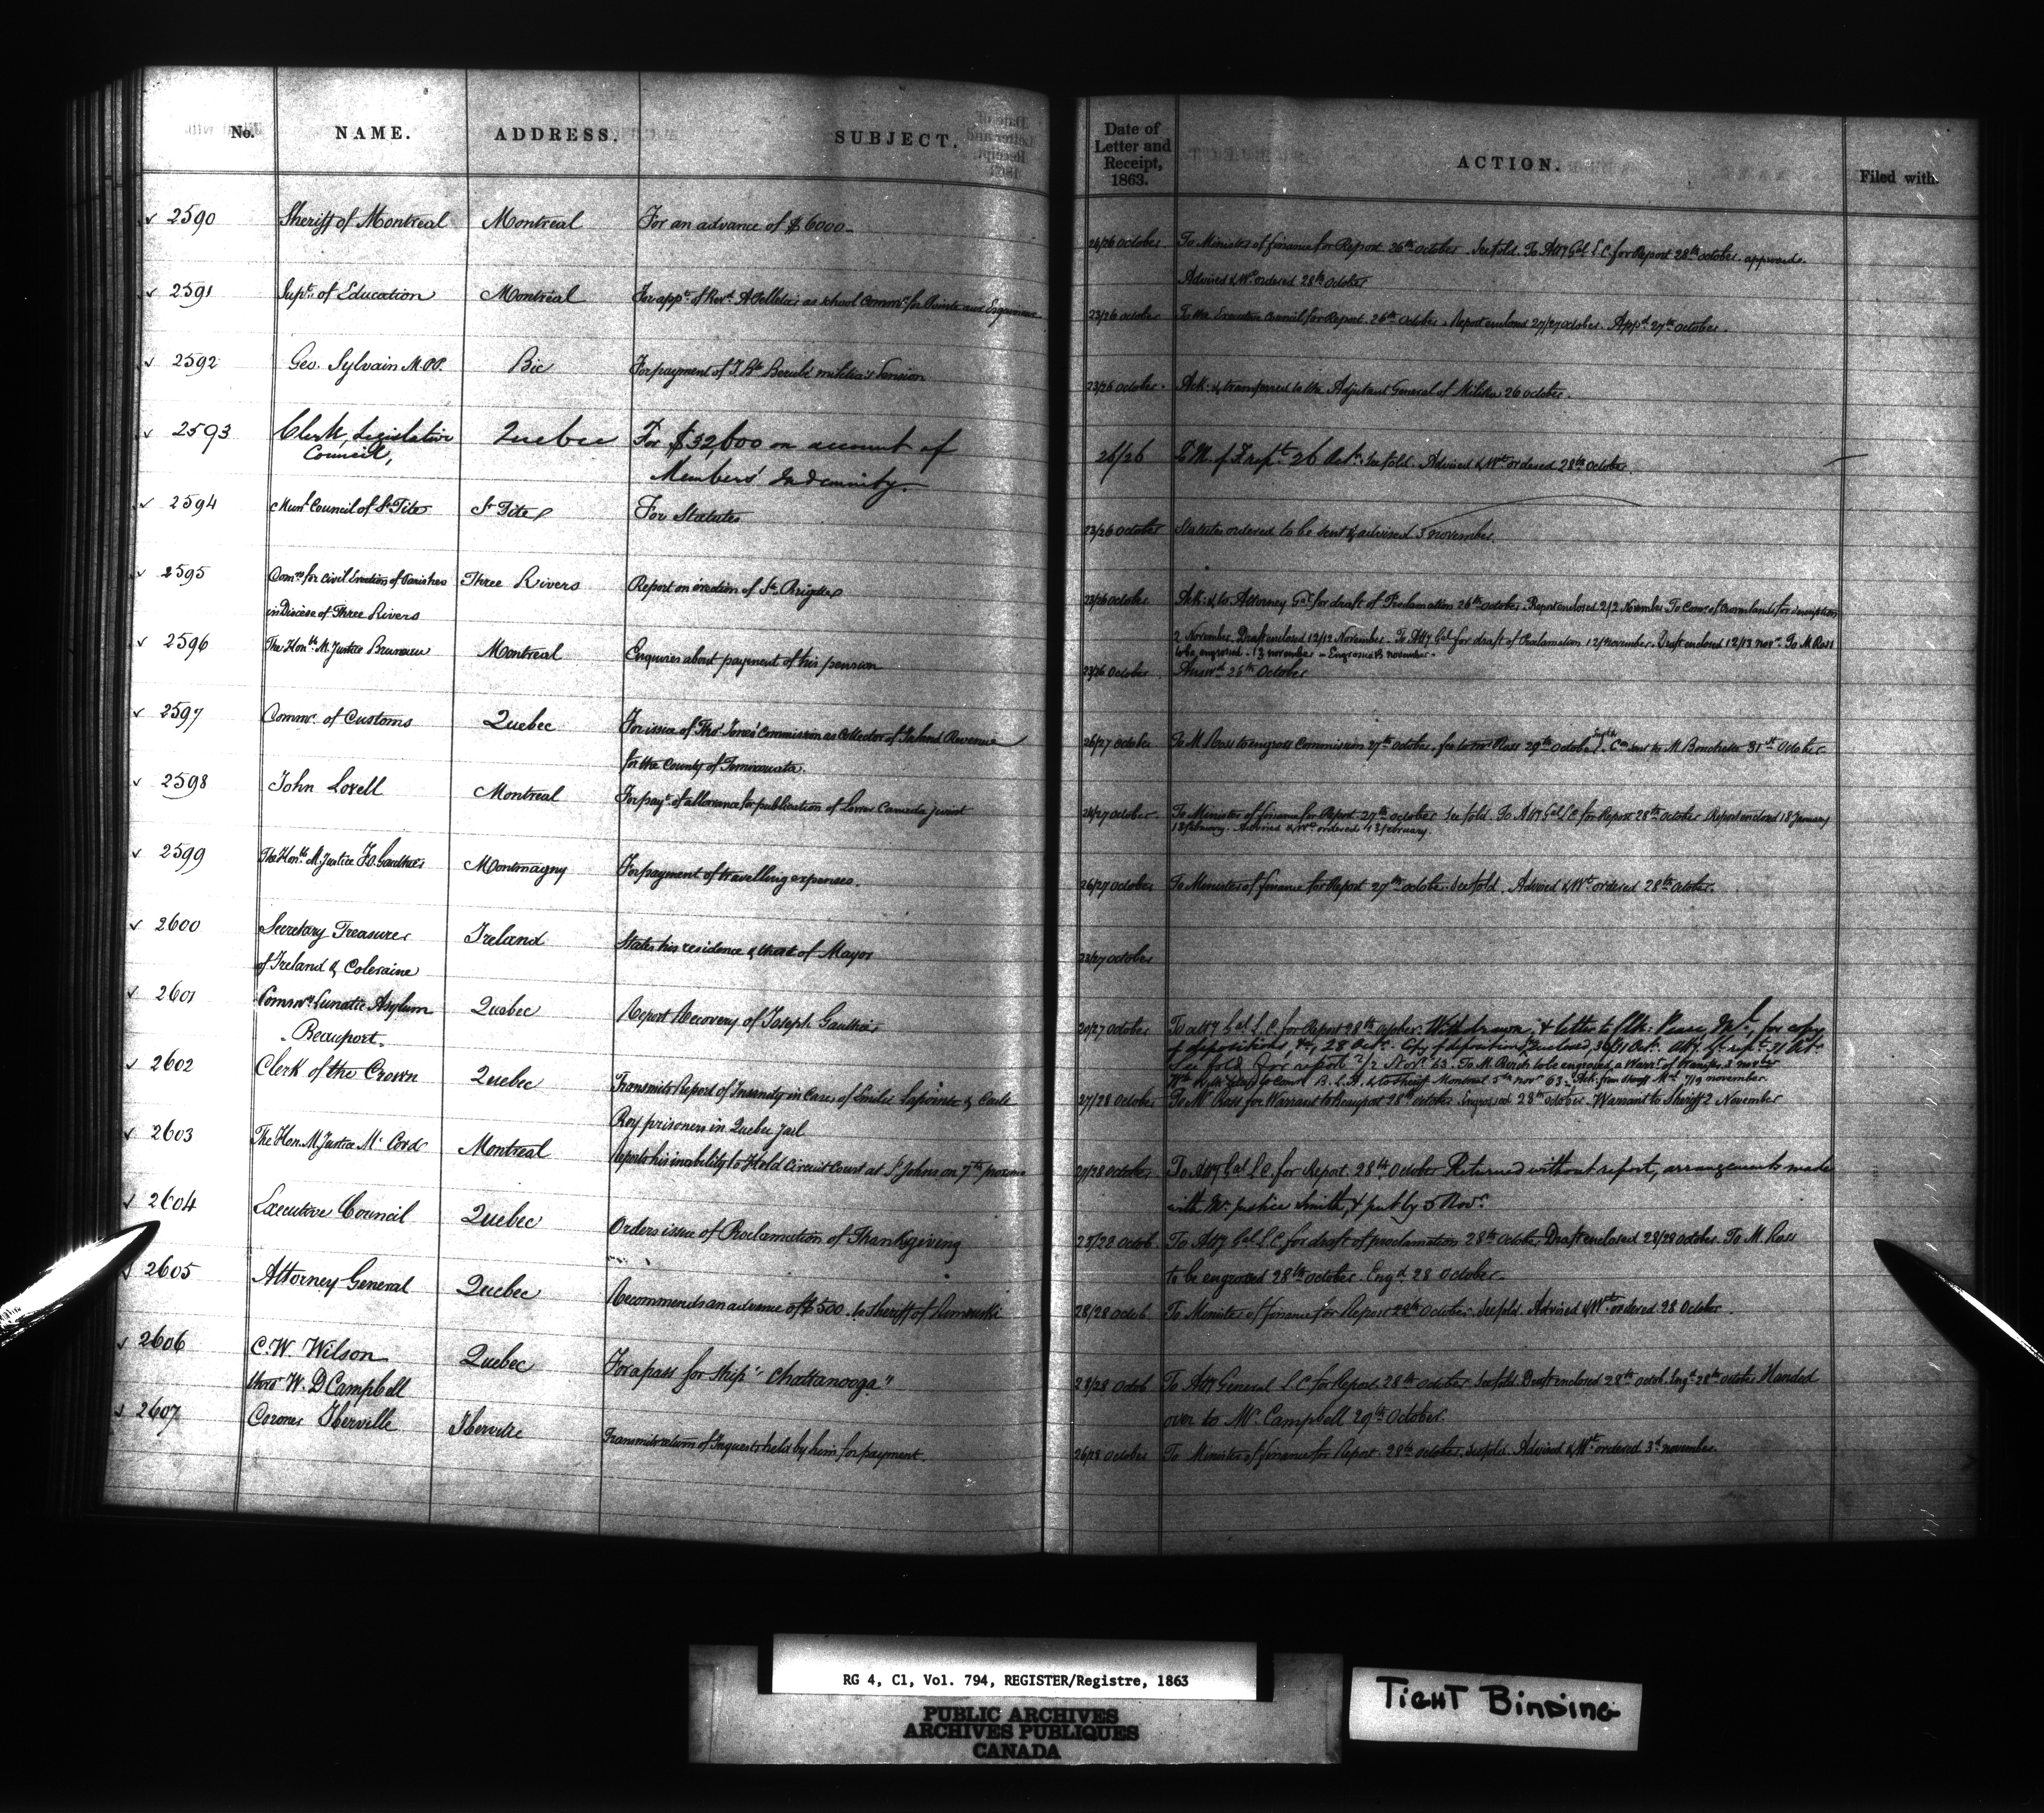 No. NAME. ADDRESS. SUBJECT. Date of Letter and Receipt, 1863. ACTION. Filed with.
2590 Sheriff of Montreal Montreal For an advance of $6000 26/26 October To Minister of finance for Report 26th October. See fold. To Atty Gal L C for Report 28th October. approved.
Advised & Wt ordered 28th October
2591 Supt. of Education Montreal For appt of Revd. A Pelletier as school Commr for Pointe aux Esquimaux 23/26 October To the Executive Council for Report. 26th October. Report enclosed 27/27 October. Appd. 27th October.
2592 Geo. Sylvain M.P.P. Bic For payment of J. Bte Berubé militia's Pension 23/26 October Ack. & transferred to the Adjutant General of Militia 26 October.
2593 Clerk, Legislative Quebec For $32,600 on account of 26/26 to M. of F. rept. 26 Oct. See fold. Advised & Wt ordered 28th October
Council, Members' Indemnity.
2594 Munl Council of St Tite St Tite For Statutes 23/26 October Statutes ordered to be sent & advised 5 november.
2595 Comrs for Civil Erection of Parishes Three Rivers Report on erection of Ste Brigitte 23/26 October Ack: & to Attorney Gal for draft of Proclamation 26th October. Report enclosed 2/2 November To Comr of Crown lands for description
in Diocese of Three Rivers 2 November. Draft enclosed 12/12 November. To Atty Gal for draft of Proclamation 12 November. Draft enclosed 12/13 novr. To M Ross
to be engrossed. 13 november - Engrossed 13 november.
2596 The Honble M. Justice Bruneau Montreal Enquires about payment of his pension 23/26 October Answd 26th October
2597 Commr. of Customs Quebec For issue of Thos Jones' Commission as Collector of Inland Revenue 26/27 October To M Ross to engross Commission 27th October. fee to Mr Ross 29th October. Con sent to M. Bouchette 31st October.
for the County of Temiscouata.
2598 John Lovell Montreal For payt. of allowance for publication of Lower Canada jurist 26/27 October. To Minister of finance for Report 27th October See fold. To Atty Gal L C for Report 28th October Report enclosed 18 January
13 february. Advised & Wt ordered 13 february.
2599 The Honble M. Justice F. O. Gauthier Montmagny For payment of travelling expenses. 26/27 October To Minister of finance for Report 27th October. See fold. Advised & Wt ordered 28th October.
2600 Secretary Treasurer Ireland States his residence & that of Mayor 23/27 October
of Ireland & Coleraine
2601 Commrs Lunatic Asylum Quebec Report Recovery of Joseph Gauthier 20/27 October To Atty Gal L. C. for Report 28th October. Withdrawn, & letter to Clk: Peace, Mtl, for copy
Beauport. of depositions, &c, 28 Oct. Copy of depositions enclosed, 30/31 Oct. Atty Gl. rept. 31 Oct.
See fold for report 2/2 Novr 63. To M. Ross to be engrossed, a Warrt of transfer 3 novber
B. L. A. & to Sheriff Montreal 5th novr 63. Ack. from Sheriff Mtl 7/9 november.
2602 Clerk of the Crown Quebec Transmits Report of Insanity in Cases of Emilie Lapointe & Carle 27/28 October To Mr Ross for Warrant to Beauport 28th October. Engrossed 28th October. Warrant to Sheriff 2 November
Roy prisoners in Quebec jail
2603 The Hon. M. Justice Mc Cord Montreal Reports his inability to Hold Circuit Court at St Johns on 7th proximo 27/28 October To Atty Gal L C. for Report. 28th October Returned without report, arrangements made
with Mr. Justice Smith, & put by 5 Novr.
2604 Executive Council Quebec Orders issue of Proclamation of Thanksgiving 28/28 Octob To Atty Gal L C. for draft of proclamation 28th October. Draft enclosed 28/28 October. To M. Ross
to be engrossed 28th October. Engd. 28 October.
2605 Attorney General Quebec Recommends an advance of $500. to Sheriff of Rimouski 28/28 Octob To Minister of finance for Report 28th October. See fold. Advised & Wt ordered 28 October.
2606 C. W. Wilson Quebec For a pass for Ship "Chattanooga" 28/28 Octob To Atty General L C for Report 28th October. See fold. Draft enclosed 28th Octob. Engd 28th October Handed
thro' W. D Campbell over to Mr. Campbell 29th October.
2607 Coroner Iberville Iberville Transmits return of Inquests held by him for payment. 26/28 October To Minister of finance for Report. 28th October. See fold. Advised & Wt ordered 3d november.
RG 4, C1, Vol. 794, REGISTER/Registre, 1863
PUBLIC ARCHIVES
ARCHIVES PUBLIQUES
CANADA
TIGHT BINDING